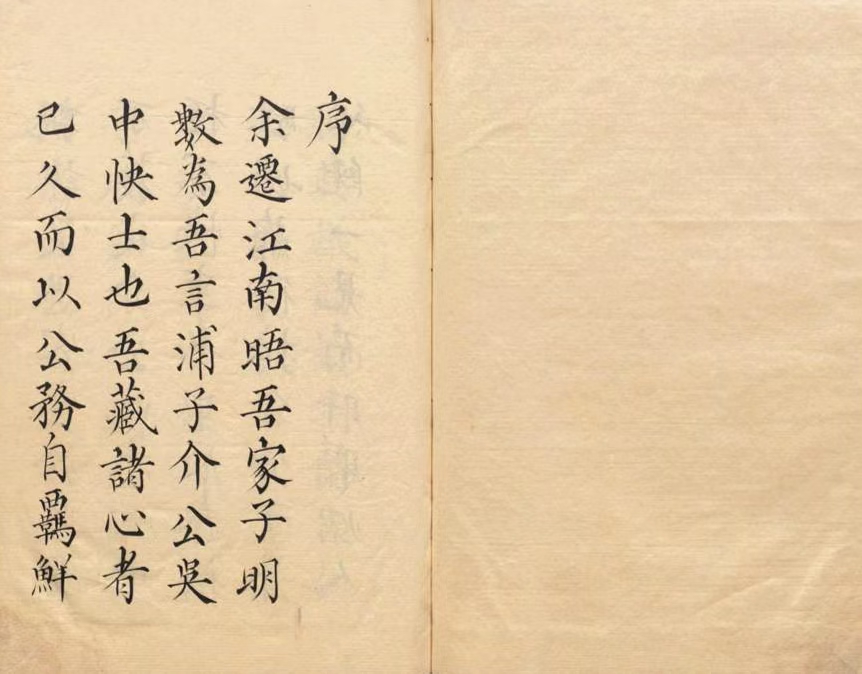 序
余遷江南晤吾家子明
數為吾言浦子介公吳
中快士也吾藏諸心者
已久而以公務自羈鮮